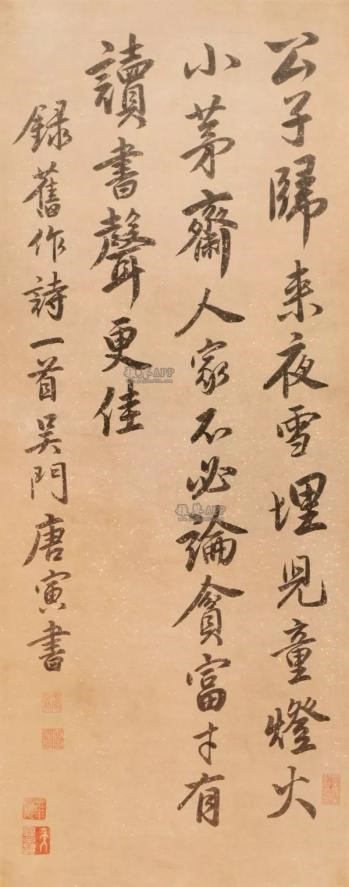 公子歸來夜雪埋兒童燈火
小茅齋人家不必論貧富才有
讀書聲更佳
錄舊作詩一首吳門唐寅書